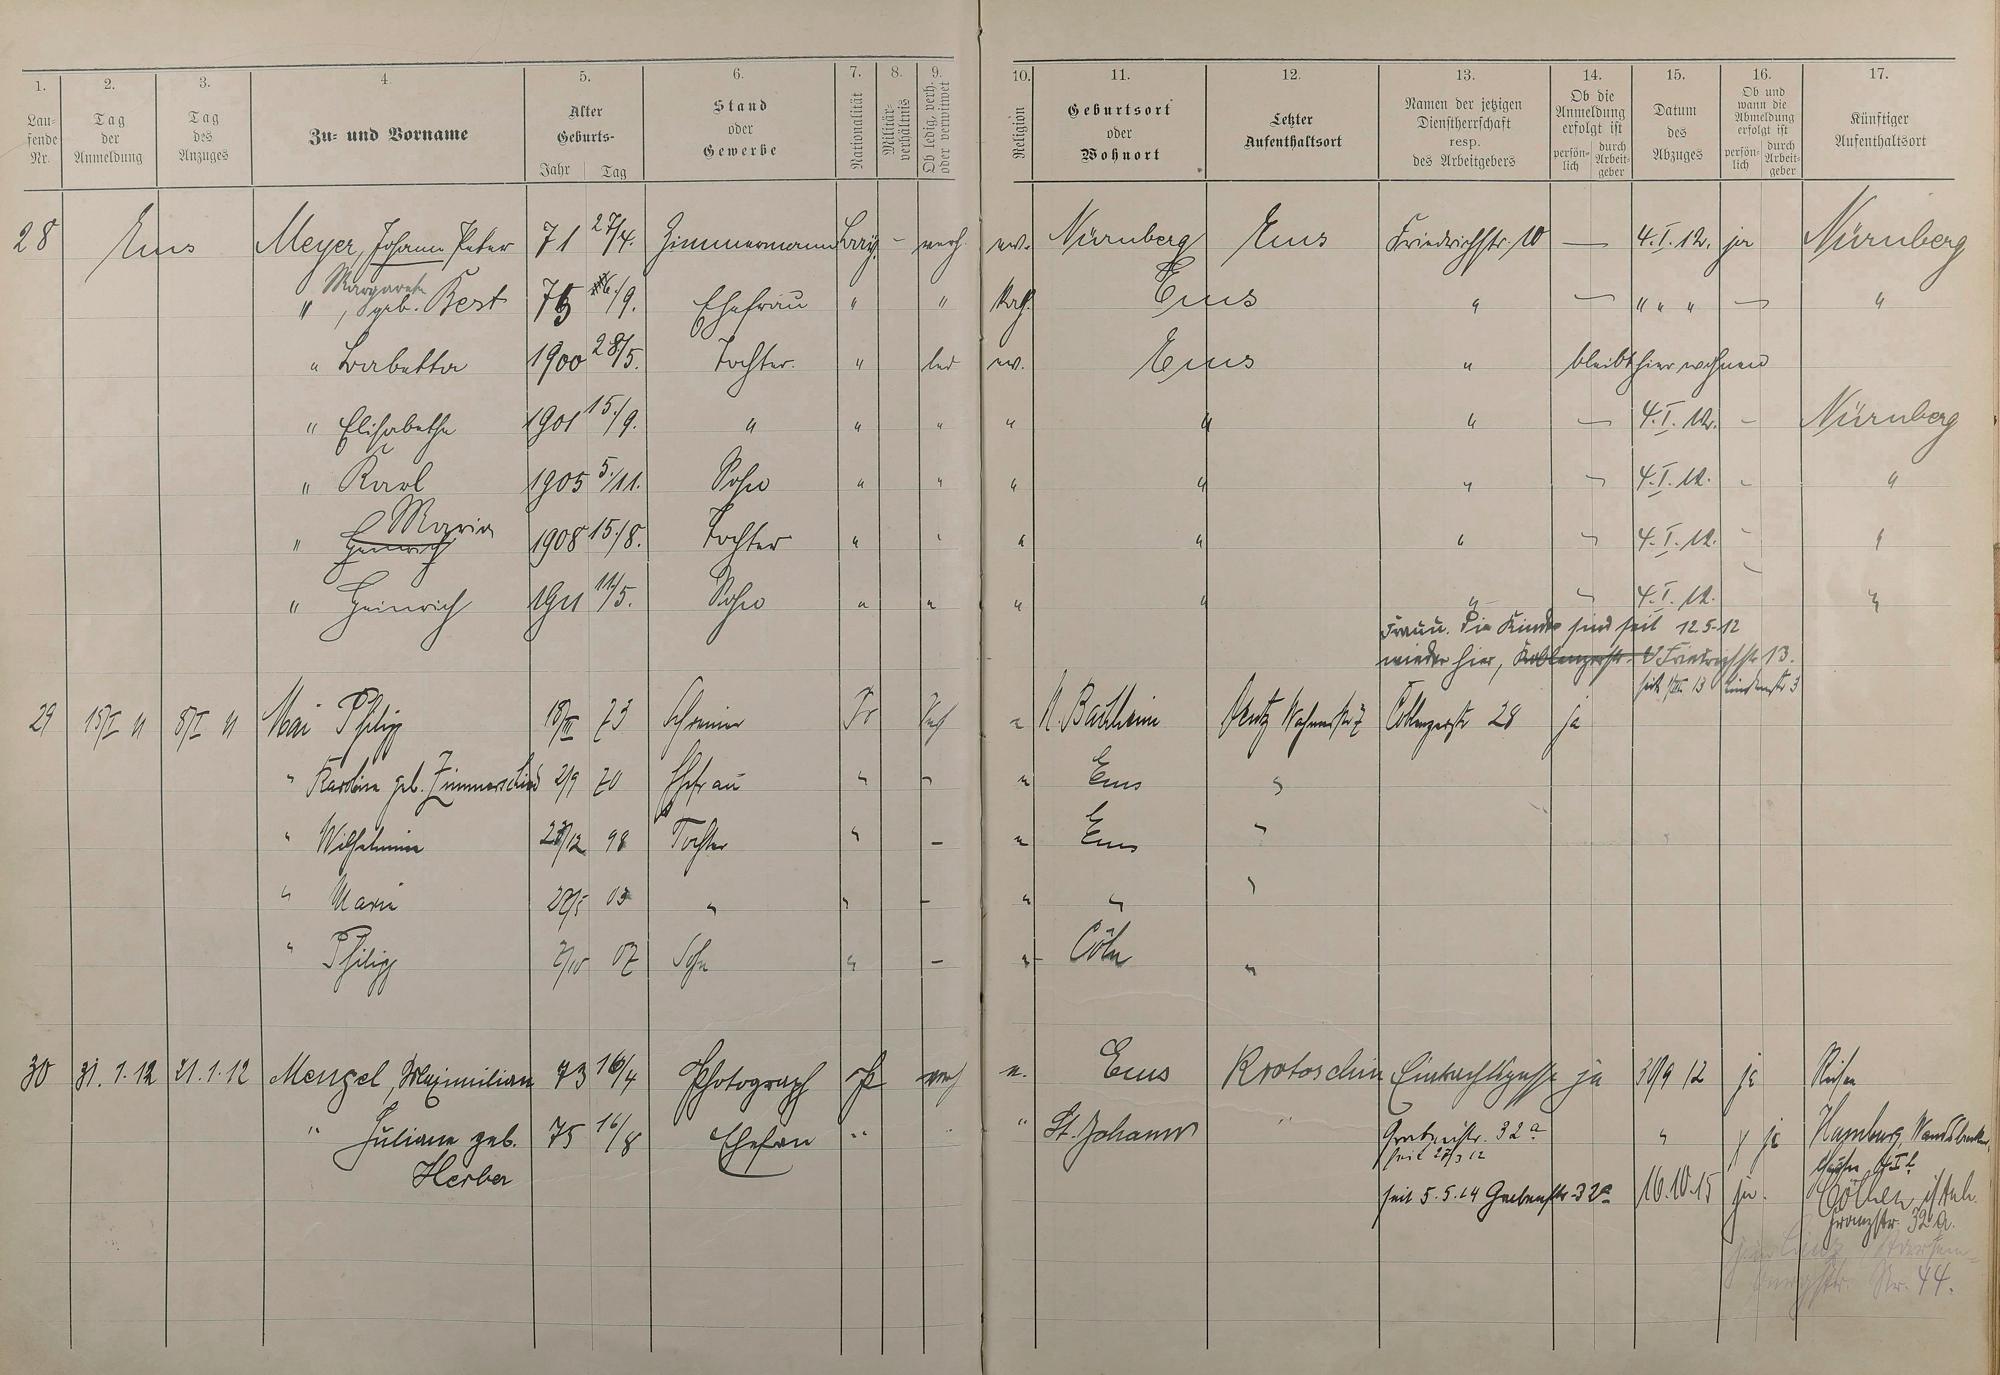 1. 2. 3. 4. 5. 6. 7. 8. 9. 10. 11. 12. 13. 14. 15. 16. 17.
Lau-
fende
Nr.
Tag
der
Anmeldung
Tag
des
Anzuges
Zu- und Vorname
Alter
Geburts-
Jahr Tag
Stand
oder
Gewerbe
Nationalität
Militär-
verhältnis
Ob ledig, verh.
oder verwitwet
Religion
Geburtsort
oder
Wohnort
Letzter
Aufenthaltsort
Namen der jetzigen
Dienstherrschaft
resp.
des Arbeitgebers
Ob die
Anmeldung
erfolgt ist
persön-
lich
durch
Arbeit-
geber
Datum
des
Abzuges
Ob und
wann die
Abmeldung
erfolgt ist
persön-
lich
durch
Arbeit-
geber
Künftiger
Aufenthaltsort
28 Ems Meyer, Johann Peter 71 27/4. Zimmermann Bay. - verh. ev. Nürnberg Ems Friedrichstr. 10 — 4.I.12. ja Nürnberg
Margarete
" , geb. Best 75 6./9. Ehefrau " " kath. Ems " — " " " — "
" Babetta 1900 28/5. Tochter. " led ev. Ems " bleibt hier wohnen
" Elisabetha 1901 15./9. " " " " " " — 4.I.12. - Nürnberg
" Karl 1905 5./11. Sohn " " " " " " 4.I.12. - "
Maria
" Heinrich 1908 15./8. Tochter " " " " " " 4.I.12. - "
" Heinrich 1911 11/5. Sohn " " " " " " 4.I.12. "
Frau u. die Kinder sind seit 12.5.12
wieder hier, Koblenzerstr. Friedrichstr 13.
seit 13 Lindenstr 3
29 15/I 11 8/I 11 Mai Philipp 18/III 73 Schreiner Pr Verh " N. Bachheim Deutz Coblenzerstr 28 ja
" Karoline geb. Zimmerschied 2/9 70 Ehefrau " " " Ems "
" Wilhelmine 12 98 Tochter " — " Ems "
" Marie 03 " " — " " "
" Philipp 2/10 07 Sohn " — " Cöln "
30 31.1.12 21.1.12 Menzel, Maximilian 73 16/4 Photograph Pr verh ev. Ems Krotoschin Eintrachtsgasse ja 30/9 12 ja Reisen
" Juliane geb. 75 16/8 Ehefrau " " " St. Johann " Grabenstr. 32a " ja Hamburg,
Herber
seit 27/3 12
seit 5.5.14 Grabenstr. 32a 16.10.15 ja. Cöthen i/Anh.
Franzstr. 32a.
Nr. 44.